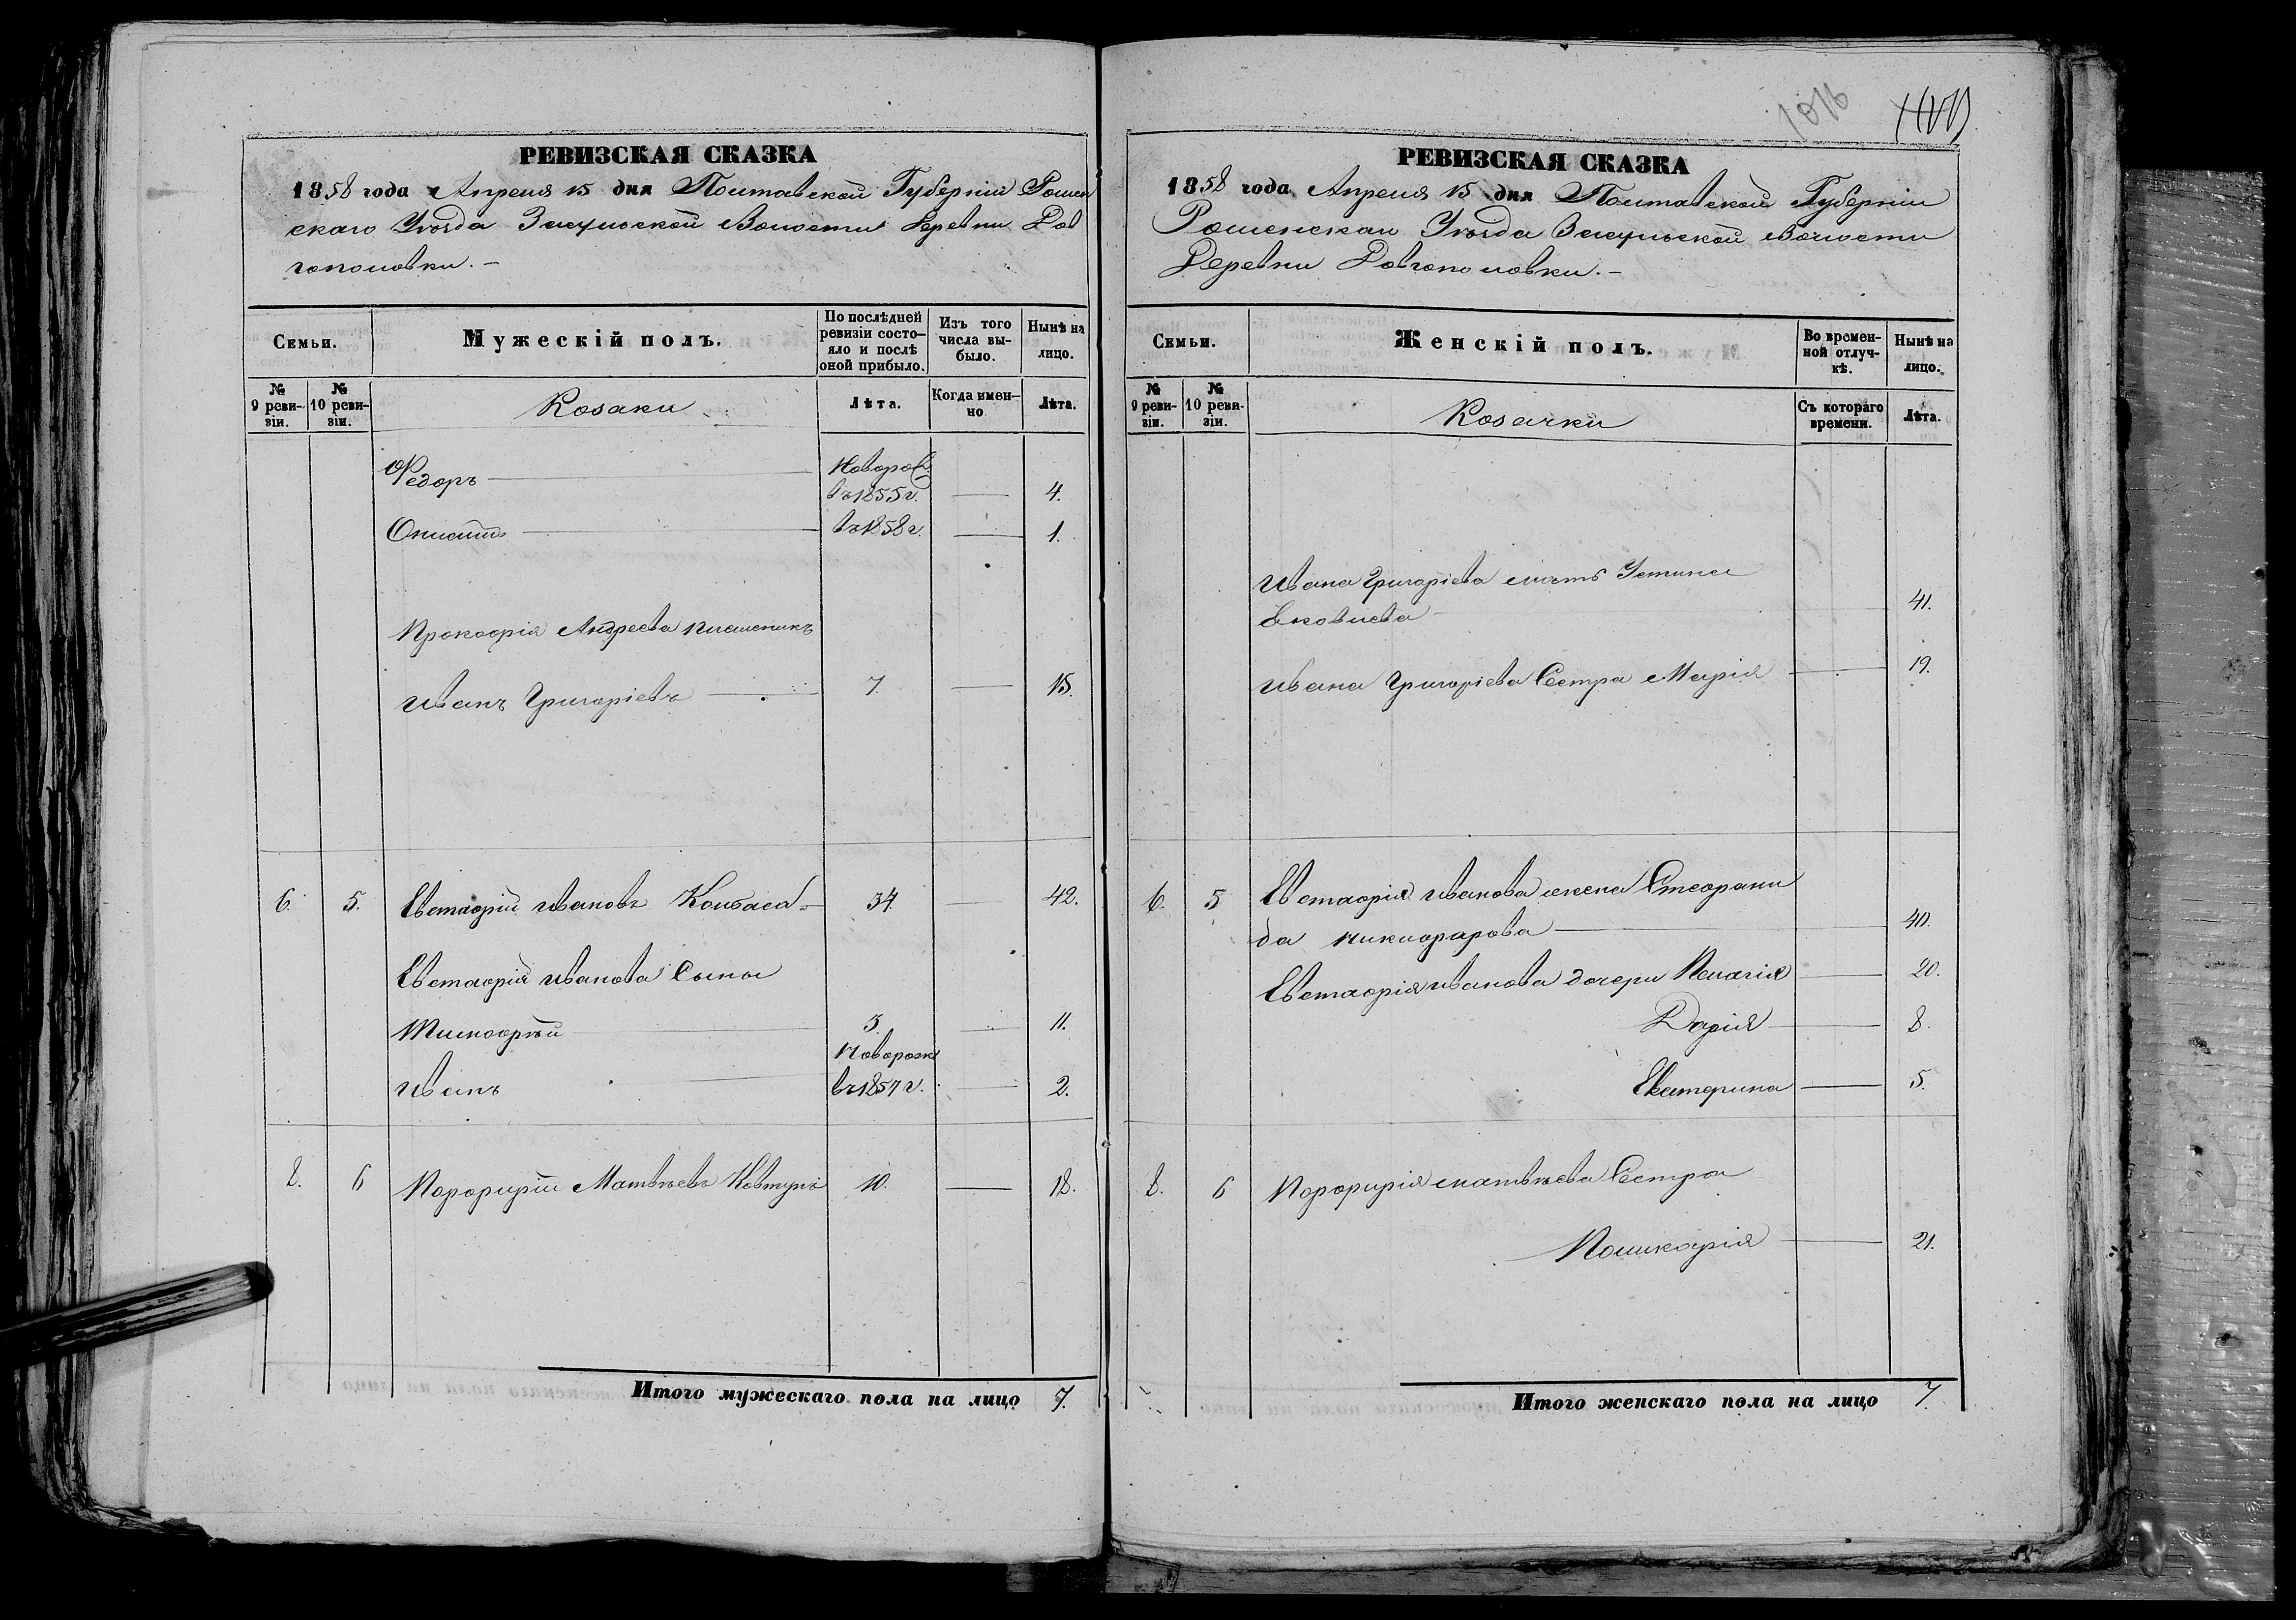 1016
РЕВИЗСКАЯ СКАЗКА
1858 года Апреля 15 дня Полтавской Губерніи Ромен
скаго Уѣзда Засульской Волости Деревни Дов
гополовки. –
Семьи.
Мужескій полъ.
По послѣдней ревизіи состо-яло и послѣ оной прибыло.
Изъ того числа вы-было.
Нынѣ на лицо.
№ 9 реви-зіи.
№ 10 реви-зіи.
Козаки
Лѣта.
Когда имен-но
Лѣта.
Федоръ — Новорож. въ 1855 г. — 4.
въ 1858 г. — 1.
Прокофія Андреева племеникъ
Иванъ Григоріевъ — 7. — 15.
6. 5. Евстафій Ивановъ Колбаса — 34. — 42.
Евстафія Иванова Сыны
Тимофѣй — 3. — 11.
Иванъ — Новорож. въ 1857 г. — 2.
8. 6 Порфирій Матвѣевъ Ковтунъ 10. — 18.
Итого мужескаго пола на лицо 7.
РЕВИЗСКАЯ СКАЗКА
1858 года Апреля 15 дня Полтавской Губерніи
Роменскаго Уѣзда Засульской Волости
Деревни Довгополовки. –
Семьи.
Женскій полъ.
Во времен-ной отлуч-кѣ.
Нынѣ на лицо.
№ 9 реви-зіи.
№ 10 реви-зіи.
Козачки
Съ котораго времени.
Лѣта.
Ивана Григоріева мать Устина
Яковлева — 41.
Ивана Григоріева Сестра Марія — 19.
6. 5 Евстафія Иванова жена Стефани
да Никифорова — 40.
Евстафія Иванова дочери Пелагія — 20.
Дарія — 8.
Екатерина — 5.
8. 6 Порфирія Матвѣева Сестра
Поликарія — 21.
Итого женскаго пола на лицо 7.